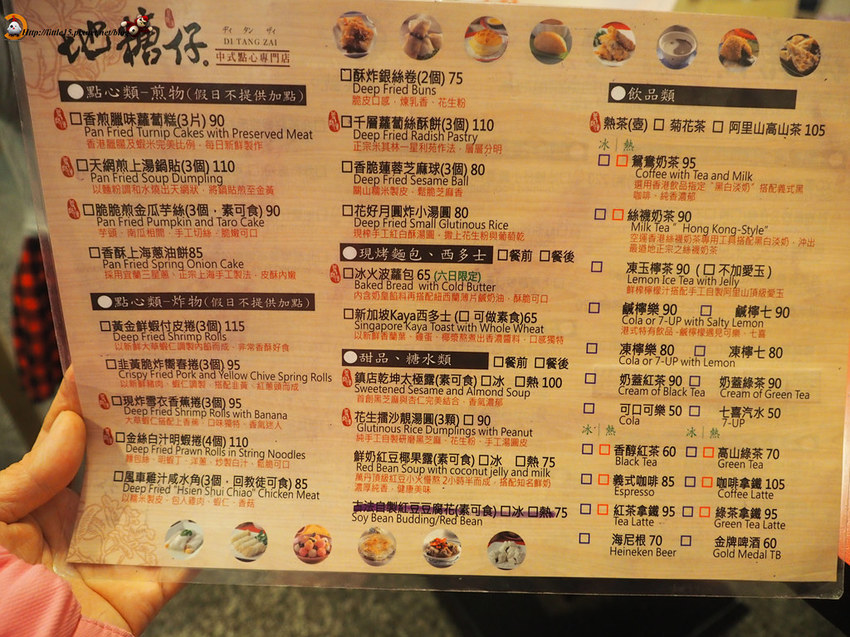 地糖仔
ディ タン ザイ
DI TANG ZAI
中式點心專門店
點心類-煎物(假日不提供加點)
香煎臘味蘿蔔糕(3片) 90
Pan Fried Turnip Cakes with Preserved Meat
香港臘腸及蝦米完美比例，每日新鮮製作
天網煎上湯鍋貼(3個) 110
Pan Fried Soup Dumpling
以麵粉調和水燒出天網狀，將鍋貼煎至金黃
脆脆煎金瓜芋絲(3個，素可食) 90
Pan Fried Pumpkin and Taro Cake
芋頭，南瓜相間，手工切絲，脆嫩可口
香酥上海蔥油餅85
Pan Fried Spring Onion Cake
採用宜蘭三星蔥，正宗上海手工製法，皮酥內嫩
點心類-炸物(假日不提供加點)
黃金鮮蝦付皮捲(3個) 115
Deep Fried Shrimp Rolls
以新鮮大草蝦仁調製內餡而成，非常香酥好食
韭黃脆炸響春捲(3個) 95
Crispy Fried Pork and Yellow Chive Spring Rolls
以新鮮豬肉，蝦仁調製，搭配韭黃，紅蔥頭而成
現炸零衣香蕉捲(3個) 95
Deep Fried Shrimp Rolls with Banana
大草蝦仁搭配上香蕉，口味獨特，香氣迷人
金絲白汁明蝦捲(4個) 110
Deep Fried Prawn Rolls in String Noodles
風車雞汁咸水角(3個，回教徒可食) 85
Deep Fried "Hsien Shui Chiao" Chicken Meat
以糯米製皮，包入雞肉，蝦仁，香菇
酥炸銀絲卷(2個) 75
Deep Fried Buns
脆皮口感，煉乳香，花生粉
千層蘿蔔絲酥餅(3個) 110
Deep Fried Radish Pastry
正宗米其林一星利苑作法，層層分明
香脆蓮蓉芝麻球(3個) 80
Deep Fried Sesame Ball
關山糯米製皮，鬆脆芝麻香
花好月圓炸小湯圓 80
Deep Fried Small Glutinous Rice
現搾手工紅白酥湯圓，撒上花生粉與葡萄乾
現烤麵包、西多士 餐前 餐後
冰火波蘿包 65 (六日限定)
Baked Bread with Cold Butter
內含奶皇餡料再搭配紐西蘭薄片鹹奶油，酥脆可口
新加坡Kaya西多士 (可做素食)65
Singapore Kaya Toast with Whole Wheat
以新鮮香蘭葉，雞蛋，椰漿熬煮出香濃醬料，口感獨特
甜品、糖水類 餐前 餐後
鎮店乾坤太極露(素可食) 冰 熱 100
Sweetened Sesame and Almond Soup
首創黑芝麻與杏仁完美結合，香氣濃郁
花生擂沙靚湯圓(3顆) 90
Glutinous Rice Dumplings with Peanut
純手工自製研磨黑芝麻，花生粉，手工湯圓皮
鮮奶紅豆椰果露(素可食) 冰 熱 75
Red Bean Soup with coconut jelly and milk
萬丹頂級紅豆小火慢熬2小時半而成，搭配知名鮮奶
濃厚純香，健康美味
古法自製紅豆豆腐花(素可食) 冰 熱 75
Soy Bean Budding/Red Bean
飲品類
熱茶(壺) 菊花茶 阿里山高山茶 105
冰 | 熱
鴛鴦奶茶 95
Coffee with Tea and Milk
選用香港飲品指定"黑白淡奶"搭配義式黑
咖啡，純香濃郁
絲襪奶茶 90
Milk Tea "Hong Kong-Style"
空運香港絲襪奶茶專用工具搭配黑白淡奶，沖出
最道地正宗之絲襪奶茶
凍玉檸茶 90 (不加愛玉)
Lemon Ice Tea with Jelly
鮮榨檸檬汁搭配手工自製阿里山頂級愛玉
鹹檸樂 90 鹹檸七 90
Cola or 7-UP with Salty Lemon
港式特有飲品，鹹檸檬遇見可樂，七喜
凍檸樂 80 凍檸七 80
Cola or 7-UP with Lemon
奶蓋紅茶 90 奶蓋綠茶 90
Cream of Black Tea Cream of Green Tea
可口可樂 50 七喜汽水 50
Cola 7-UP
冰 | 熱 冰 | 熱
香醇紅茶 60 高山綠茶 70
Black Tea Green Tea
義式咖啡 85 咖啡拿鐵 105
Espresso Coffee Latte
紅茶拿鐵 95 綠茶拿鐵 95
Tea Latte Green Tea Latte
海尼根 70 金牌啤酒 60
Heineken Beer Gold Medal TB